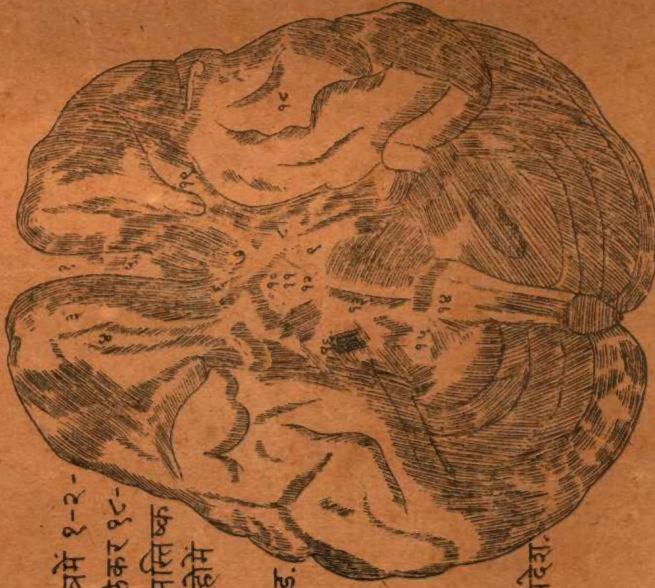 त्रमें १-२-
लेकर १८-
मस्तिष्क
होमें
ड.
देश.
१
३
४
१८
७
८
९
१०
११
१२
१३
१४
१५